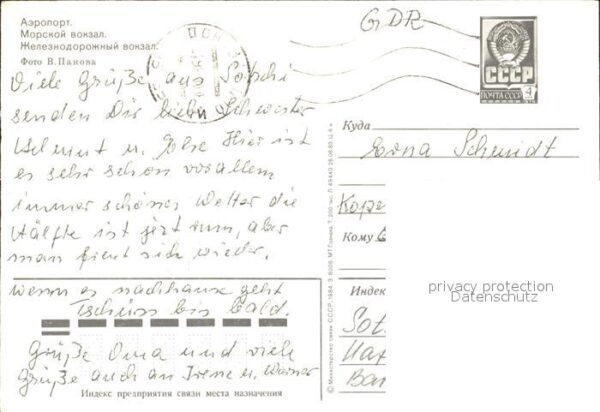 Аэропорт.
Морской вокзал.
Железнодорожный вокзал.
Фото В.Панова
GDR
СССР
ПОЧТА СССР
4
Viele Grüße aus Sotschi
senden Dir liebe Schwester
Helmut u. Else Hier ist
es sehr schön vor allem
immer schönes Wetter die
Hälfte ist jetzt rum, aber
man freut sich wieder,
wenn es nachhause geht
Tschüss bis bald.
Grüße Oma und viele
Grüße auch an Irene u. Werner
Индекс предприятия связи места назначения
© Министерство связи СССР, 1984.
Куда
Erna Schmidt
Кому
Индекс
Sot
privacy protection
Datenschutz